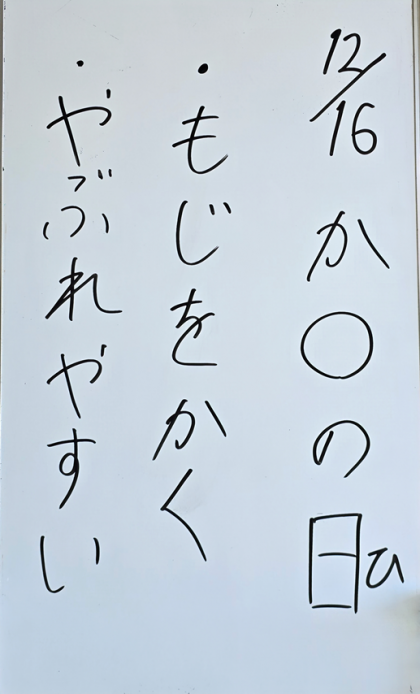 12/16 か〇の日ひ
・もじをかく
・やぶれやすい